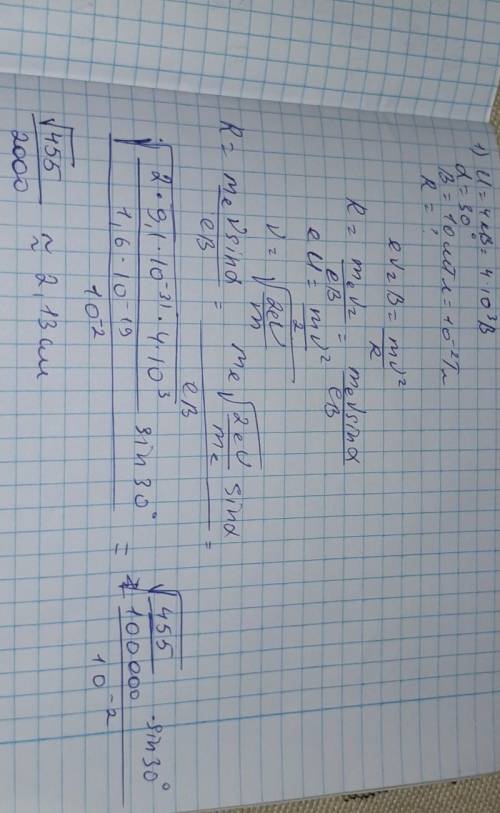 1) U = 4 кВ = 4 · 10³ В
α = 30°
B = 10 мТл = 10⁻² Тл
R = ?
ev₂B = mv²/R
R = mₑv₂/eB = mₑv sinα/eB
eU = mv²/2
v = √(2eU/m)
R = mₑv sinα/eB = mₑ√(2eU/mₑ) sinα/eB =
√(2 · 9,1 · 10⁻³¹ · 4 · 10³/1,6 · 10⁻¹⁹) sin 30°/10⁻² = √(455/100000) · sin 30°/10⁻²
√455/2000 ≈ 2,13 см